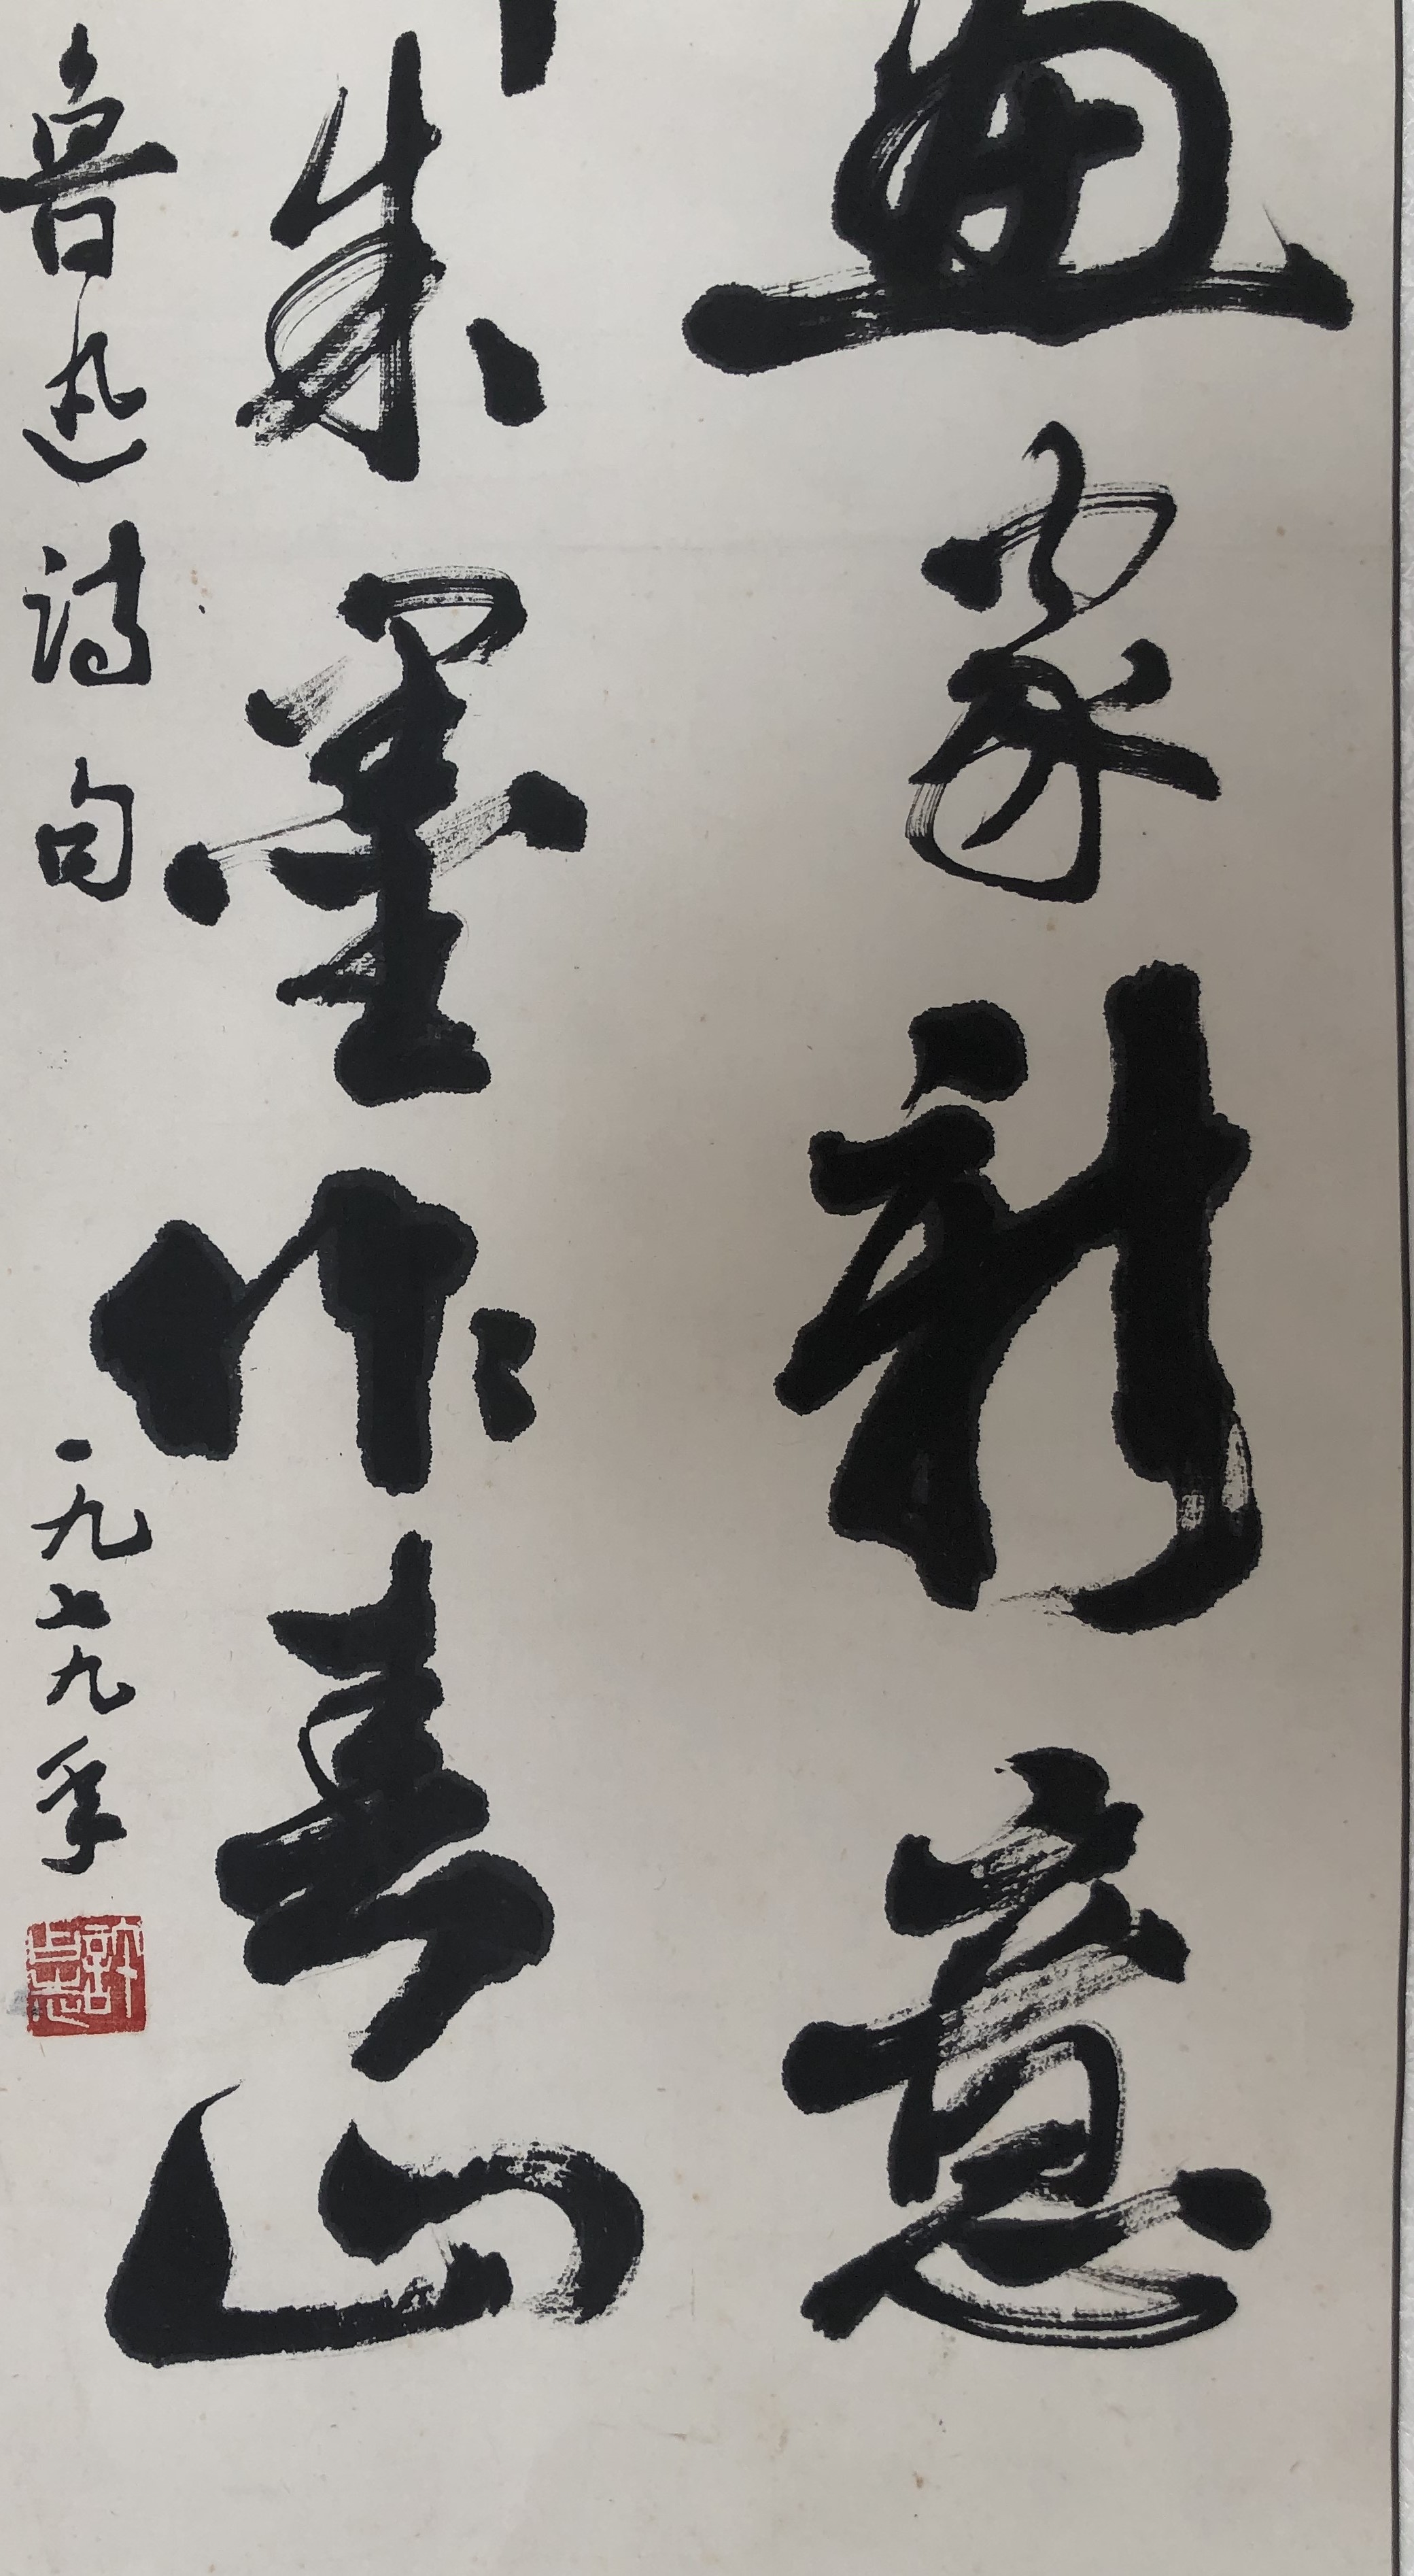 畫家新意
朱墨作春山
魯迅詩句 一九七九年